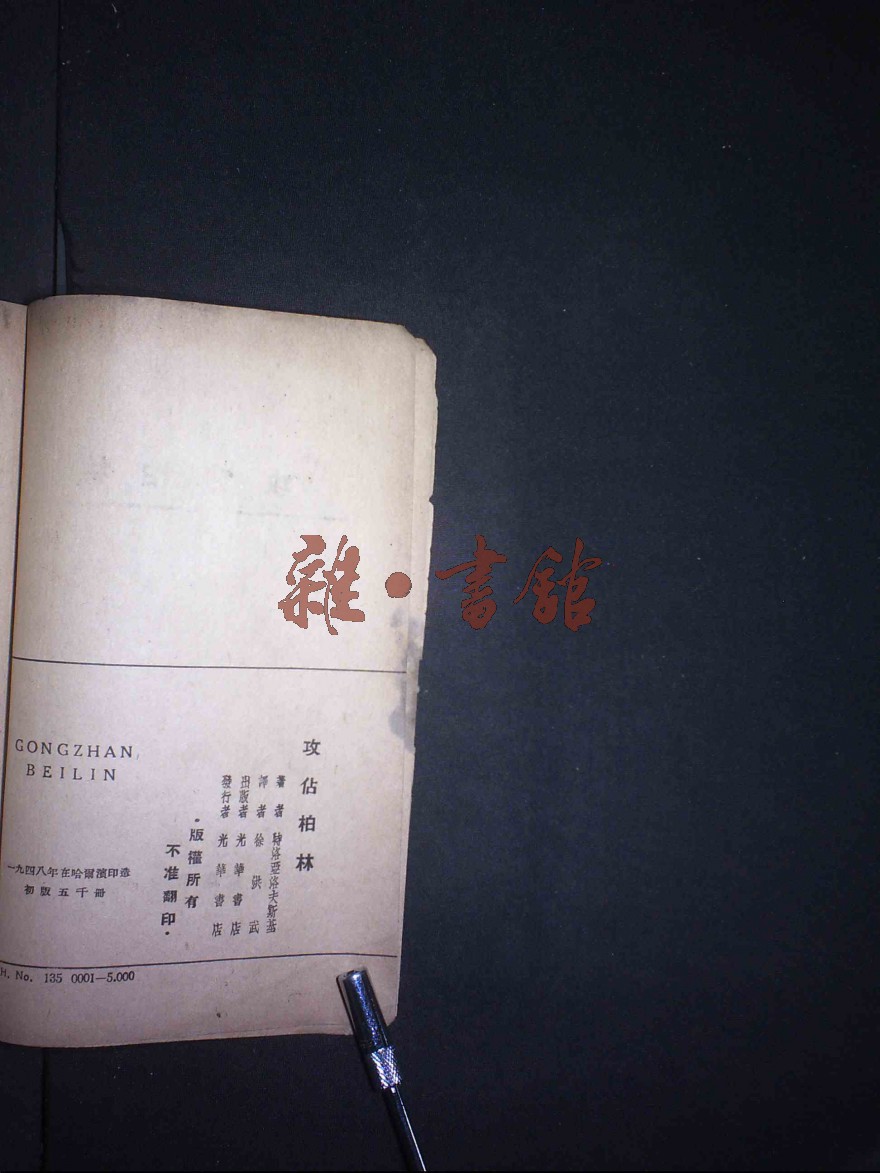 攻佔柏林
著者 特洛亞洛夫斯基
譯者 徐洪武
出版者 光華書店
發行者 光華書店
·版權所有
不准翻印·
GONGZHAN
BEILIN
一九四八年在哈爾濱印造
初版五千冊
H. No. 135 0001—5.000
雜·書館